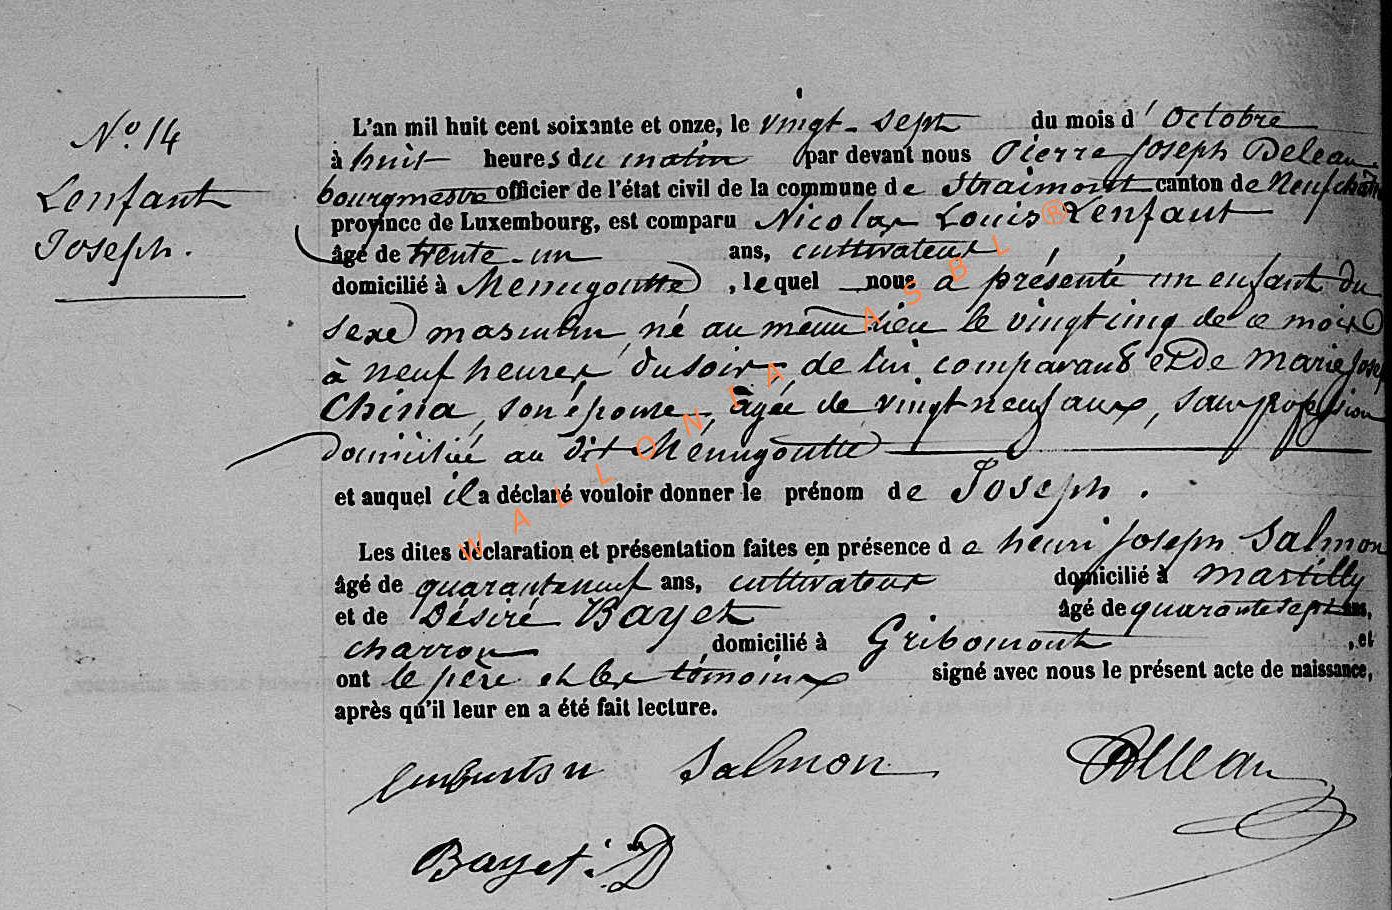 N° 14
Lenfant
Joseph.
L'an mil huit cent soixante et onze, le vingt-sept du mois d'Octobre
à huit heures du matin par devant nous Pierre Joseph Deleau
bourgmestre officier de l'état civil de la commune de Straimont canton de Neufchâteau
province de Luxembourg, est comparu Nicolas Louis Lenfant
âgé de trente-un ans, cultivateur
domicilié à Menugoutte, lequel nous a présenté un enfant du
sexe masculin, né au même lieu le vingt cinq de ce mois
à neuf heures du soir, de lui comparant et de Marie Josep
China, son épouse, âgée de vingt neuf ans, sans profession
domiciliée au dit Ménugoutte
et auquel il a déclaré vouloir donner le prénom de Joseph.
Les dites déclaration et présentation faites en présence de henri Joseph Salmon
âgé de quarante neuf ans, cultivateur domicilié à Martilly
et de Désiré Bayet âgé de quarante sept ans,
charron domicilié à Gribomont, et
ont le père et les témoins signé avec nous le présent acte de naissance,
après qu'il leur en a été fait lecture.
Salmon
Deleau
Bayet. D
WALLONIA ASBL ®